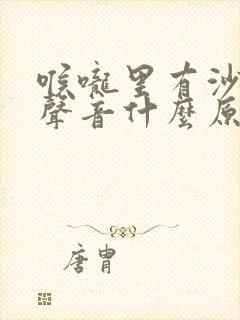 喉嚨里有沙
聲音什麼原
唐胄